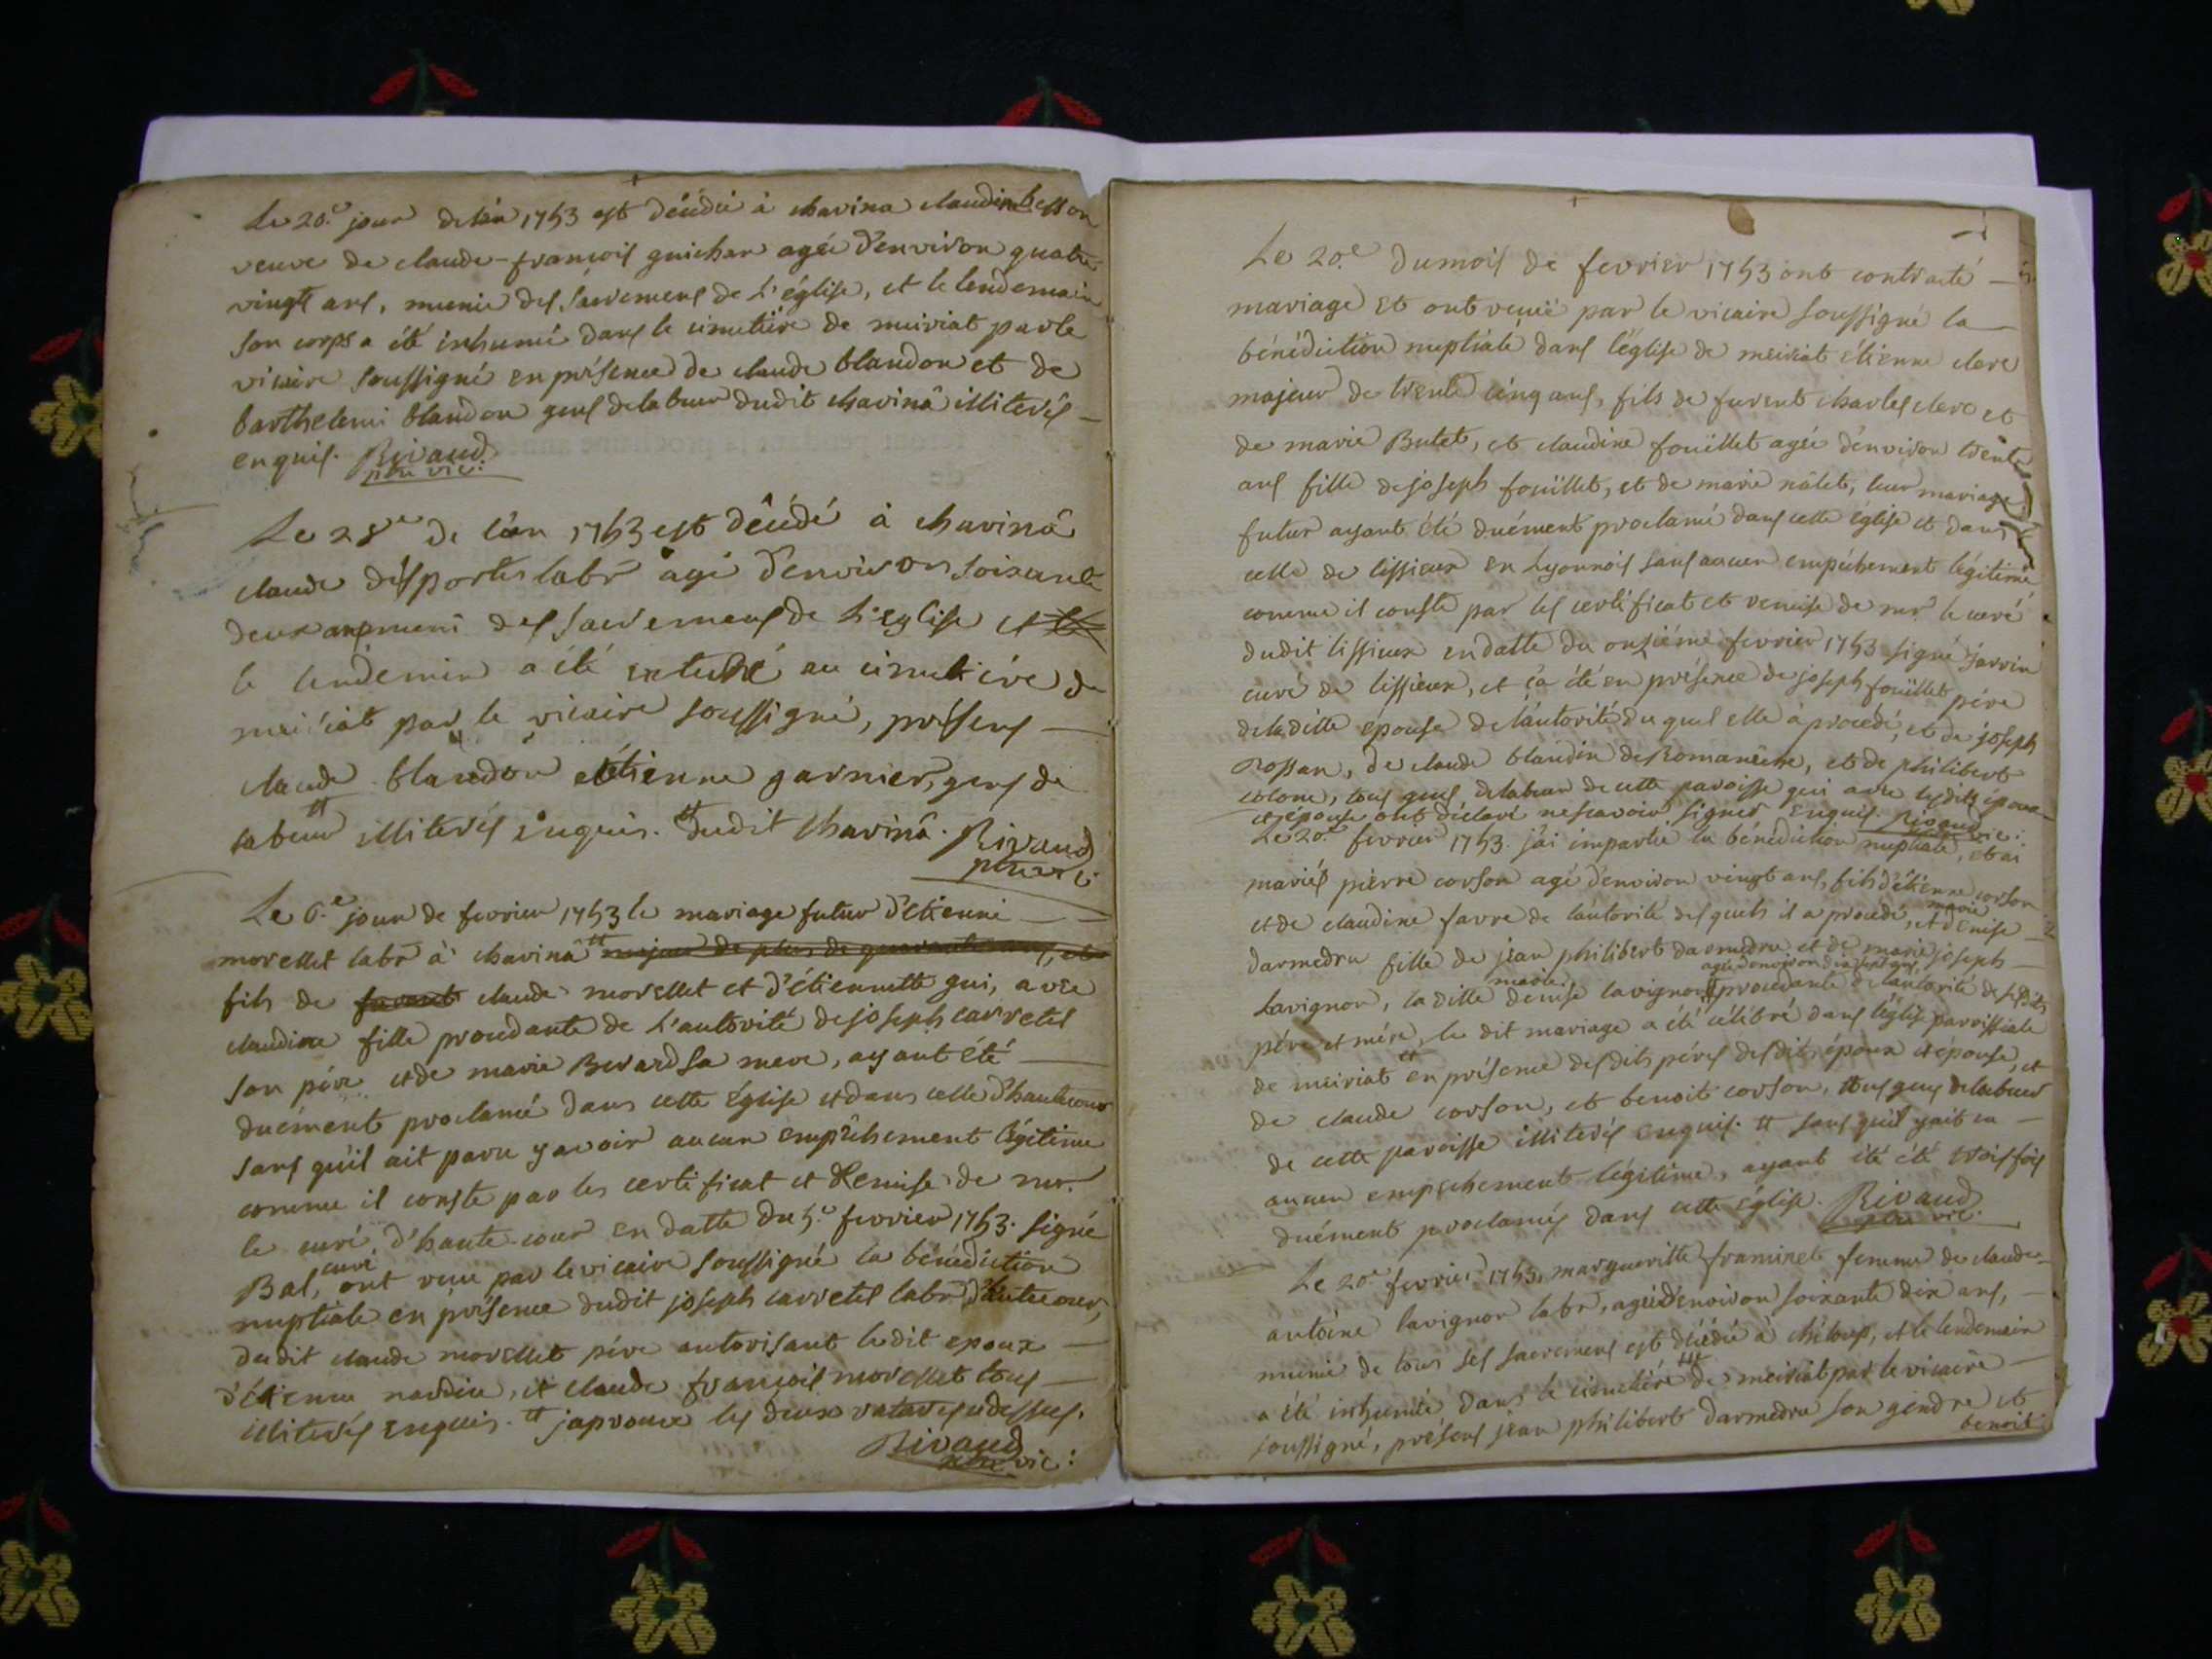 Le 20.e jour de l'an 1753 est décédée à chavina claudine besson
veuve de claude-françois guichar agée d'environ quatre
vingt ans, munie des sacremens de L'église, et le lendemain
son corps a été inhumé dans le cimetière de meiriat par le
vicaire soussigné en présence de claude blandon et de
barthelemi blandon gens de labeur dudit chavinâ illiterés
enquis. Rivaud
ptre vic:
Le 28e de l'an 1753 est décédé à chavinâ
claude desportes labr agé d'environ soixante
deux ans muni des sacremens de L'église et
le lendemain a été enterré au cimetière de
meiriat par le vicaire soussigné, présens
claude blandon et étienne garnier, gens de
labeur illiterés enquis. dudit chavinâ. Rivaud
ptre vic:
Le 6.e jour de fevrier 1753 le mariage futur d'étienne
morellet labr à chavinâ majeur de plus de quarante ans, et
fils de favant claude morellet et d'étiennette gui, avec
claudine fille procedante de L'autorité de joseph carretel
son pére et de marie Berard sa mere, ayant été
duëment proclamé dans cette église et dans celle d'hautecour
sans qu'il ait paru y avoir aucun empêchement légitime
comme il conste par les certificat et remise de mr.
le curé d'haute-cour en datte du 5.e fevrier 1753. signé
Bal, curé ont reçu par le vicaire soussigné la bénédiction
nuptiale en présence dudit joseph carretel labr d'hautecour,
dudit claude morellet pére autorisant ledit epoux
d'étienne nardin, et claude françois morellet tous
illiterés enquis. japrouve les deux ratures cy dessus.
Rivaud
ptre vic:
Le 20.e du mois de fevrier 1753 ont contracté
mariage et ont reçuë par le vicaire soussigné la
bénédiction nuptiale dans l'église de meiriat étienne clerc
majeur de trente cinq ans, fils de furent charles clerc et
de marie Butet, et claudine fouïllet agée d'environ trente
ans fille de joseph fouïllet, et de marie nâlet, leur mariage
futur ayant été duément proclamé dans cette église et dans
celle de lissieux en Lyonnois sans aucun empêchement légitime
comme il conste par les certificat et remise de mr. le curé
dudit lissieux en datte du onziéme fevrier 1753 signé jarrin
curé de lissieux, et ça été en présence de joseph fouïllet pére
de ladite epouse de l'autorité du quel elle a procédé, et de joseph
Rossan, de claude blandin de Romanêche, et de philibert
colone, tous gens de labeur de cette paroisse qui avec lesdits époux
et épouse ont déclaré ne scavoir signer enquis. Rivaud vic:
Le 20.e fevrier 1753. j'ai impartie la bénédiction nuptiale, et ai
mariés pierre corson agé d'environ vingt ans, fils d'étienne corson
et de claudine favre de l'autorité des quels il a procédé, et marie denise
darmedru fille de jean philibert darmedru et de marie joseph
Lavignon, la dite marie denise lavignon agée d'environ dix sept ans procedante de l'autorité desdits
pére et mére, le dit mariage a été célébré dans l'église parrissiale
de meiriat en présence desdits péres desdits époux et épouse, et
de claude corson, et benoit corson, tous gens de labeur
de cette paroisse illiterés enquis. sans qu'il y ait eu
aucun empechement légitime, ayant été été trois fois
duément proclamés dans cette église. Rivaud
ptre vic.
Le 20.e fevrier 1753, margueritte framinet femme de claude
antoine lavignon labr, agée d'environ soixante dix ans,
munie de tous ses sacremens est décédée à chiloup, et le lendemain
a été inhumée dans le cimetière de meiriat par le vicaire
soussigné, présens jean philibert darmedru son gendre et
benoit